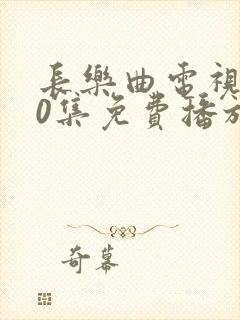 長樂曲電視
0集免費播放
奇幕